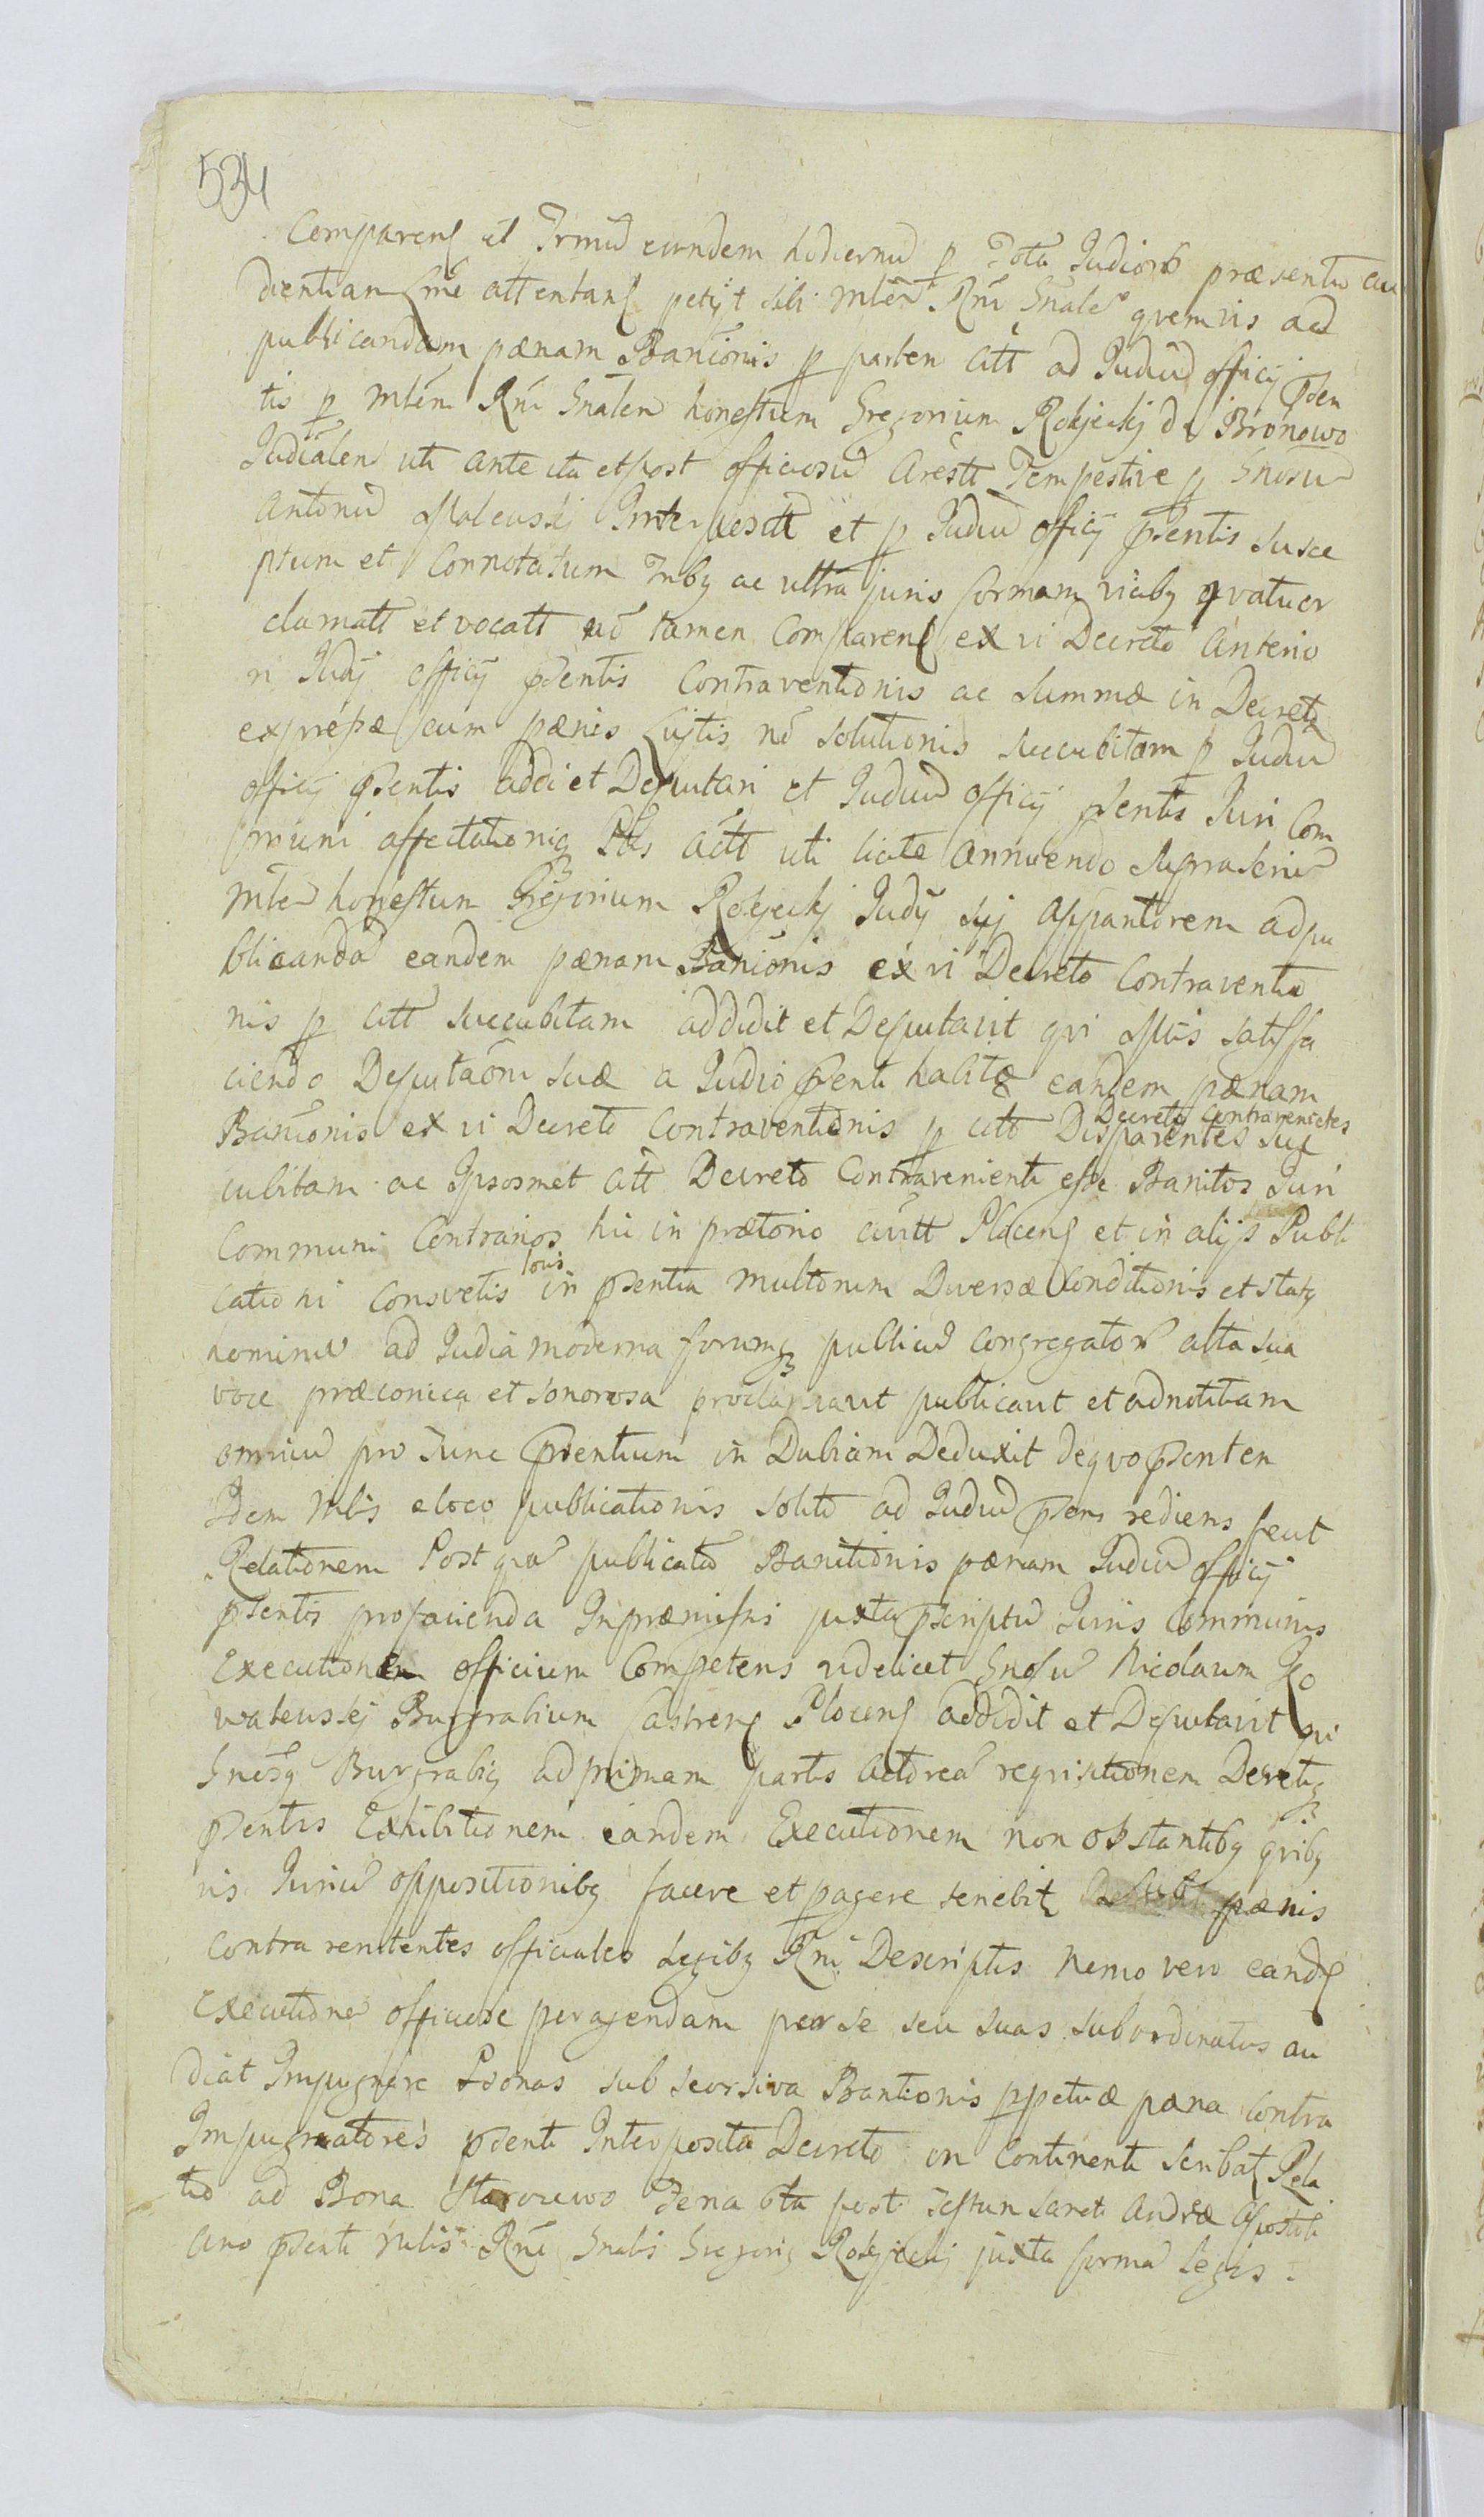 534
Comparens et Trmū eundem hodiernū p Tota Judiorū præsentiū au
dientiam sme attentans petijt sibi mlem Rni Gnale quemvis ad
publicandam pænam Banionis p partem citt ad Judiū officij pṡen
tis p mlem Rni Gnalem honestum Gregorium Rokjeckj de Bronowo
Judialem uti ante ita et post officiosū Arestt Tempestive p Gnosū
Antoniū Interposett et p Judiū officij pṡentis susce
ptum et Connotatum Trby ac ultra juris formam vicibg quatuor
clamatt et vocatt nō tamen Comparens ex vi Decreto Anterio
ri Judij officij pṡentis Contraventionis ac summæ in Decreto
expressæ cum pænis Lujtis nō solutionis succubitam p Judiū
officij pṡentis addi et Deputari et Judiū officij pṡentis Juri Com
muni affectationiq Ptis Actt uti licite annuendo supraseriū
mlem honestum Gregorium Rokjeckj Judij sui Appantorem ad pu
blicandā eandem pænam Banionis ex vi Decreto Contraventio
nis p citt succubitam addidit et Deputavit qui Offtis satisfa
ciendo Deputaōni suæ a Judio pṡenti habitæ eandem pænam
Banionis ex vi Decreto Contraventionis p citt Disparentes Decreto Contravenientes suc
cubitam ac Ipsosmet citt Decreto Contravenienti esse Banitos Juri
Communi Contrarios hic in prætorio civitt Plocens et in alijs Publi
cationi Consvetis locis in pṡentia multorum Diversæ Conditionis et statq
hominū ad Judia moderna forumq publicū congregatorū alta sua
voce præconica et sonorosa proclamavit publicavit et ad notitiam
omniū pro Tunc pṡentium in Dubiam Deduxit de quo pṡenten
Idem mlis e loco publicationis solito ad Judiū pṡens rediens fecit
Relationem Post quā publicatā Banitionis pænam Judiū officij
pṡentis pro facienda In præmissis juxta pṡcriptū Juris Communis
Executionem officium Competens videlicet Gnosū Nicolaum Ko
walewskj Burgrabium Castrens Plocens addidit et Deputavit qui
Gnosq Burgrabiq ad primam partis Actoreā requisitionem Decretiq
pṡentis Exhibitionem eandem Executionem non obstantibq qvibq
vis Juriū oppositionibq facere et pagere tenebitr sub pænis
contra renitentes officiales Legibq Rni Descriptis Nemo vero eandē
Executione officiose peragendam per se seu suas subordinatas au
diat Impugnare Psonas sub seorsiva Banitionis ppetuæ pæna contra
Impugnatores pṡenti Interposita Decreto in Continenti scribatr Rela
tio ad Bona Feria 6ta post Festum Sancti Andræ Apostoli
Ano pṡenti mlis Rni Gnalis Gregorij Rokjeckj juxta formā Legis.